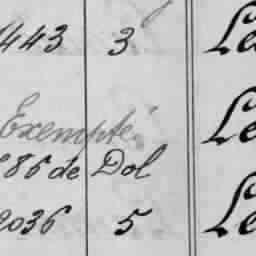 1443 3 Le
Exempté Le
186 de Dol
2036 5 Le